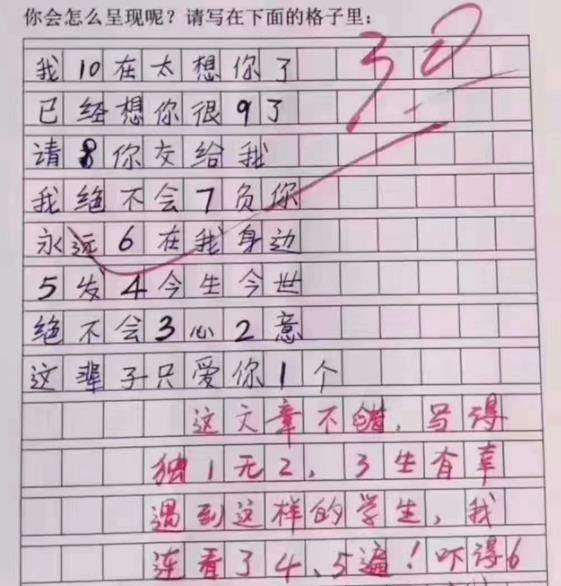 你会怎么呈现呢？请写在下面的格子里：
30
我10在太想你了
已经想你很9了
请8你交给我
我绝不会7负你
永远6在我身边
5发4今生今世
绝不会3心2意
这辈子只爱你1个
这文章不错，写得
独1无2，3生有幸
遇到这样的学生，我
连看了4、5遍！吓得6